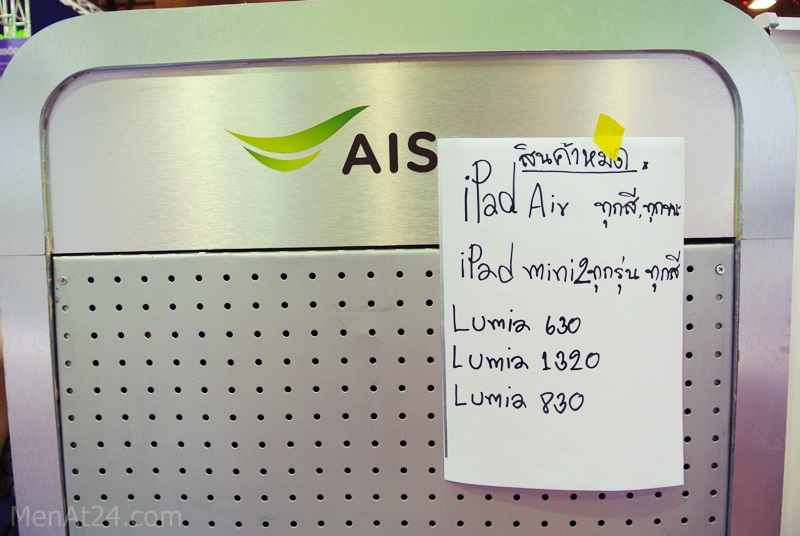 AIS
สินค้าหมด
iPad Air ทุกสี, ทุกขนาด
iPad mini2 ทุกรุ่น ทุกสี
Lumia 630
Lumia 1320
Lumia 830
MenAt24.com